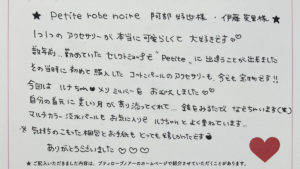 ★ Petite robe noire 阿部好世様・伊藤実里様 ★
1つ1つのアクセサリーが本当に可愛らしくて大好きです♡♡
数年前、勤めていたセレクトショップで"Petite"に出逢うことが出来ました
その当時に初めて購入したコットンパールのアクセサリーも、今でも宝物です!!
今回はルナちゃん メリ シルバーをお迎えしました♡
自分の首元に美しい月が寄り添ってくれて…鏡をみるたびなでちゃいます(笑)
マルチカラー淡水パールもお気に入りでルナちゃんとよく重ねています…
※ 気持ちのこもった梱包とお手紙もとっても嬉しかったです
ありがとうございました ♡♡♡
★ ご記入いただきました内容は、ブティローブノアーのホームページで紹介させていただくことがあります。